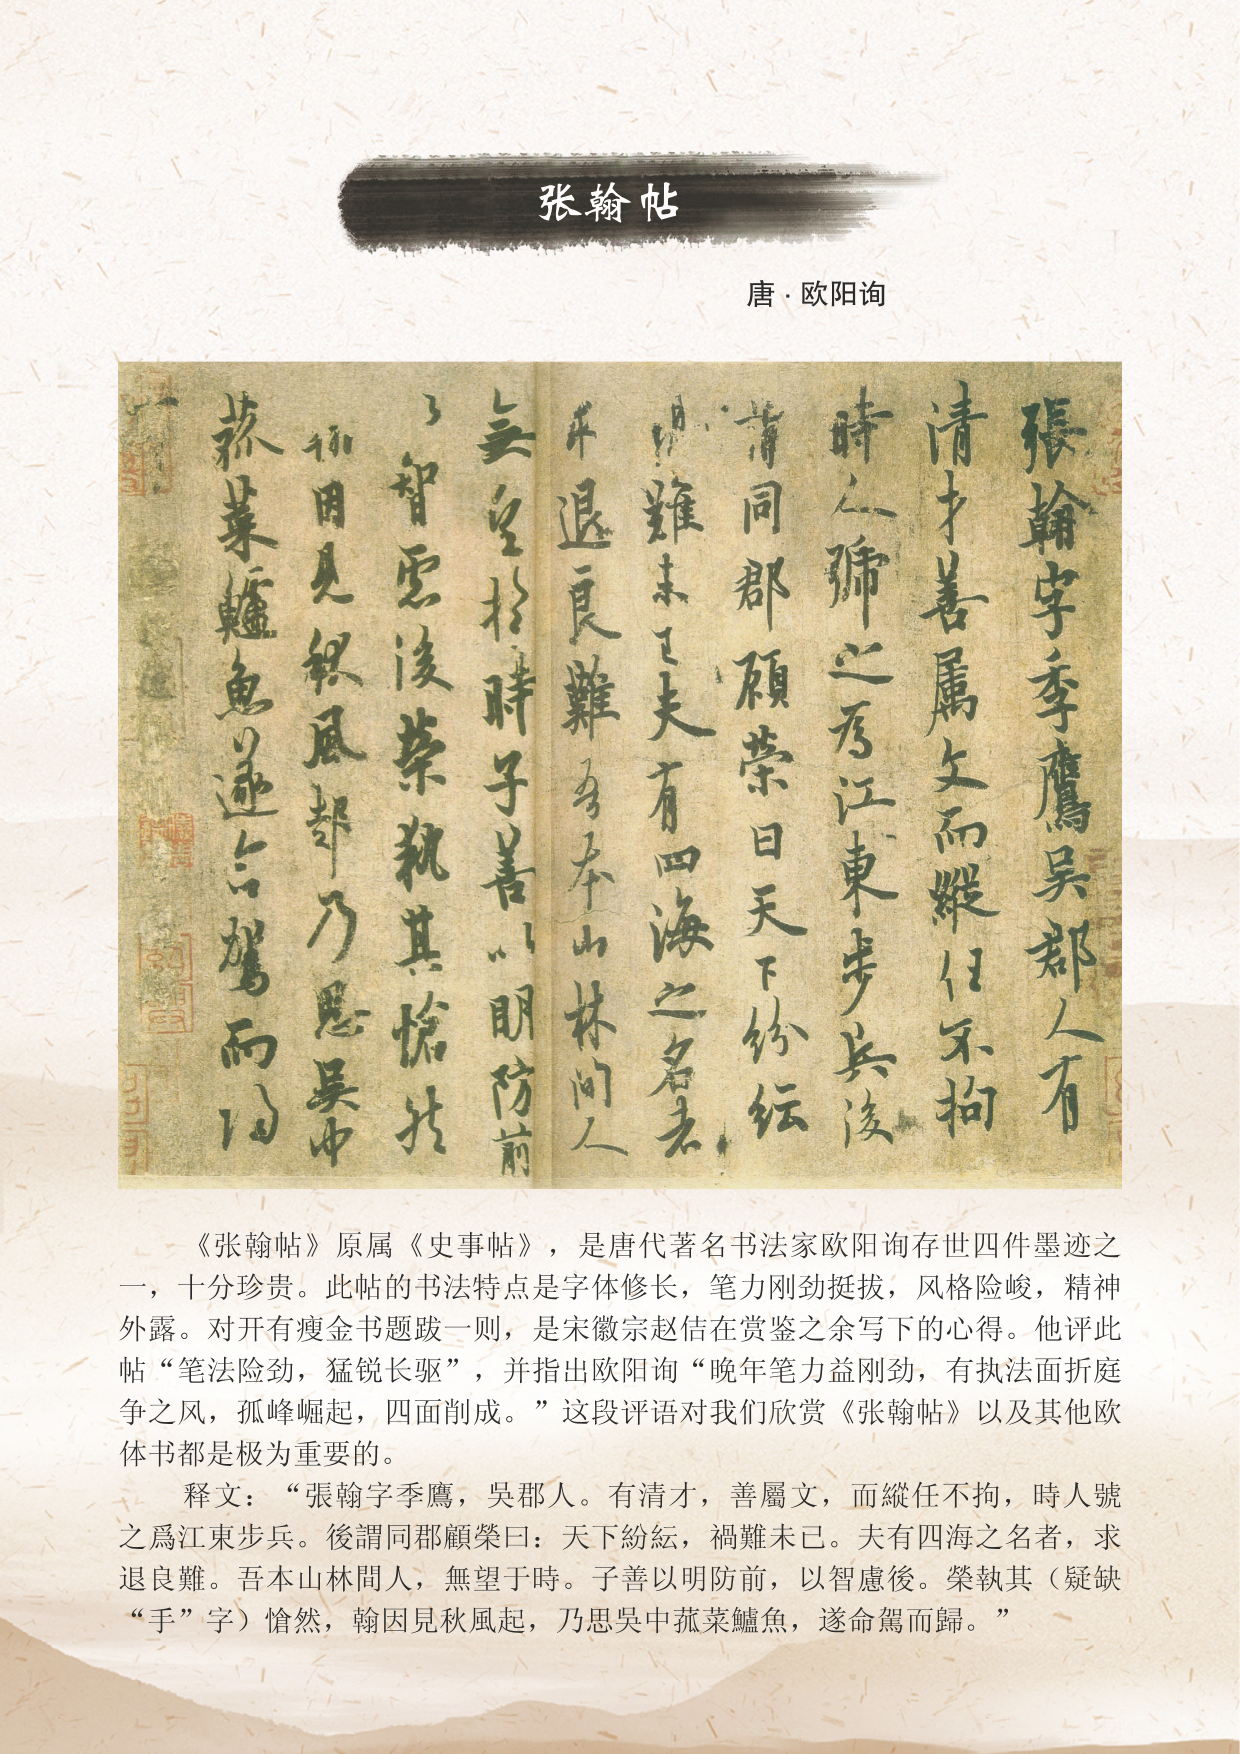 张翰帖
唐·欧阳询
張翰字季鷹吴郡人有
清才善属文而縱任不拘
時人號之為江東步兵後
謂同郡顧榮曰天下紛紜
禍難未已夫有四海之名者
求退良難吾本山林间人
無望於時子善以明防前
以智慮後榮執其愴然
翰因見秋風起乃思吳中
菰菜鱸魚遂命駕而歸
《张翰帖》原属《史事帖》，是唐代著名书法家欧阳询存世四件墨迹之
一，十分珍贵。此帖的书法特点是字体修长，笔力刚劲挺拔，风格险峻，精神
外露。对开有瘦金书题跋一则，是宋徽宗赵佶在赏鉴之余写下的心得。他评此
帖“笔法险劲，猛锐长驱”，并指出欧阳询“晚年笔力益刚劲，有执法面折庭
争之风，孤峰崛起，四面削成。”这段评语对我们欣赏《张翰帖》以及其他欧
体书都是极为重要的。
释文：“張翰字季鷹，吳郡人。有清才，善屬文，而縱任不拘，時人號
之爲江東步兵。後謂同郡顧榮曰：天下紛紜，禍難未已。夫有四海之名者，求
退良難。吾本山林間人，無望于時。子善以明防前，以智慮後。榮執其（疑缺
“手”字）愴然，翰因見秋風起，乃思吳中菰菜鱸魚，遂命駕而歸。”